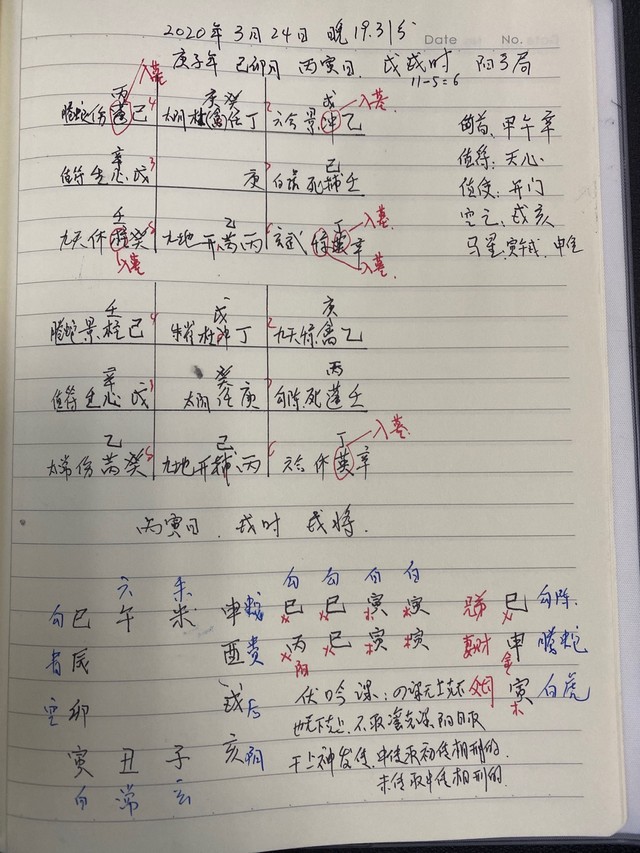 2020年3月24日 晚19.31分
Date No.
庚子年 己卯月 丙寅日 戊戌时 阳3局
11-5=6
入墓
丙 庚癸 戊 入墓
螣蛇伤蓬己4 太阴杜禽任丁 2六合景冲乙
旬首:甲午辛
辛 己
值符生心戊3 庚 白虎死辅壬
值符:天心
值使:开门
空亡:戌亥
壬 乙 丁 入墓
九天休 癸 九地开芮丙 玄武惊英辛
马星:寅午戌 申金
入墓 入墓
壬 戊 庚
螣蛇景柱己4 朱雀杜冲丁 2九天惊禽乙
辛 癸 丙
值符生心戊 太阴任庚 勾陈死蓬壬
乙 己 丁 入墓
太常伤芮癸 九地开辅丙 六合休英辛
丙寅日 戌时 戌将.
六 朱 勾 勾 白 白
勾巳 午 未 申蛇 巳 巳 寅 寅 兄弟 巳 勾陈
青辰 酉贵 丙 巳 寅 寅 妻财 申 螣蛇
火 火 木 木 金
阳
空卯 戌后 伏吟课:四课无上克下 父 寅 白虎
木
也无下克上,不取 克课阳日取
寅 丑 子 亥阴 干上神发传,中传取初传相刑的.
白 常 玄 末传取中传相刑的.